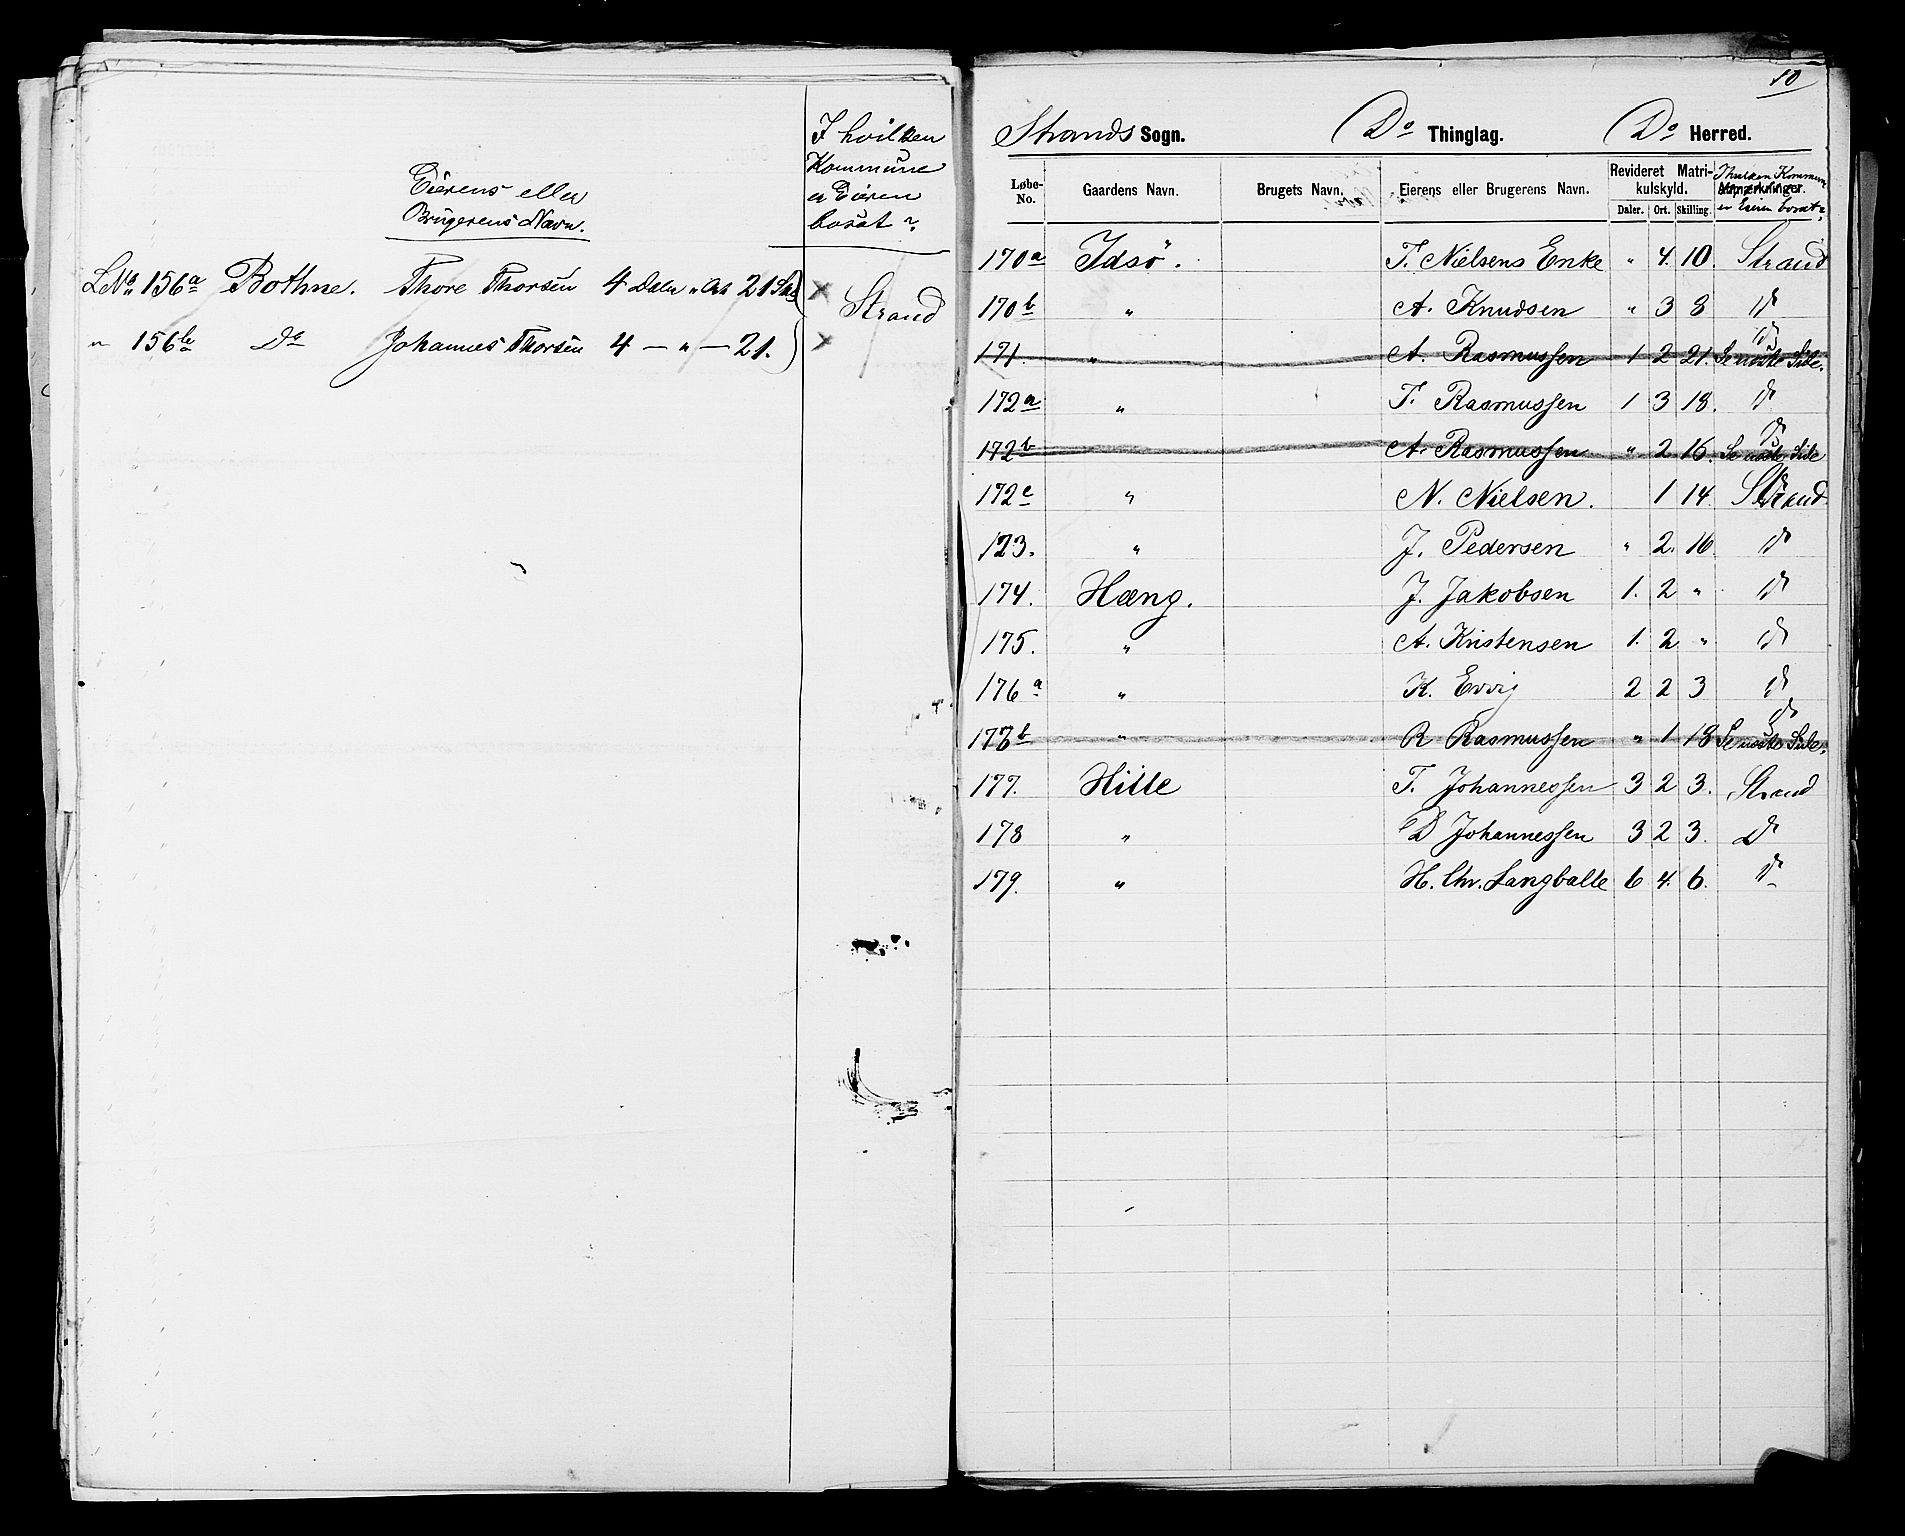 I hvilken
Kommune
er Eieren
bosat?
Eierens eller
Brugerens Navn.
LNo 156a Bothne. Thore Thorsen 4 Daler " Ort 21 Sk) × Strand
" 156b Do Johannes Thorsen 4 — " — 21.) ×
10
Strands Sogn. Do Thinglag. Do Herred.
Løbe-No. Gaardens Navn. Brugets Navn. Eierens eller Brugerens Navn. Revideret Matrikulskyld. Daler. Ort. Skilling. Anmærkninger. I hvilken Kommune er Eieren bosat?
170a Idsö. T. Nielsens Enke " 4. 10. Strand
170b " A. Knudsen " 3 8 do
171. " A. Rasmussen 1 2 21. do Se næste Side.
172a " T. Rasmussen 1 3 18. do
172b A. Rasmussen " 2 16. do Se næste Side
172c " N. Nielsen. 1 14. Strand
123. " J. Pedersen " 2. 16 do
174. Hæng. J. Jakobsen 1. 2 " do
175. " A. Kristensen 1. 2 " do
176a " K. Evvig 2 2 3 do
176b " R Rasmussen " 1 18 do Se næste Side.
177. Hille T. Johannessen 3 2 3. Strand
178 " D Johannessen 3 2 3. do
179. " H. Chr. Langballe 6 4. 6. do